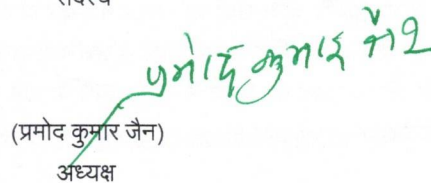 सदस्य
प्रमोद कुमार जैन
(प्रमोद कुमार जैन)
अध्यक्ष